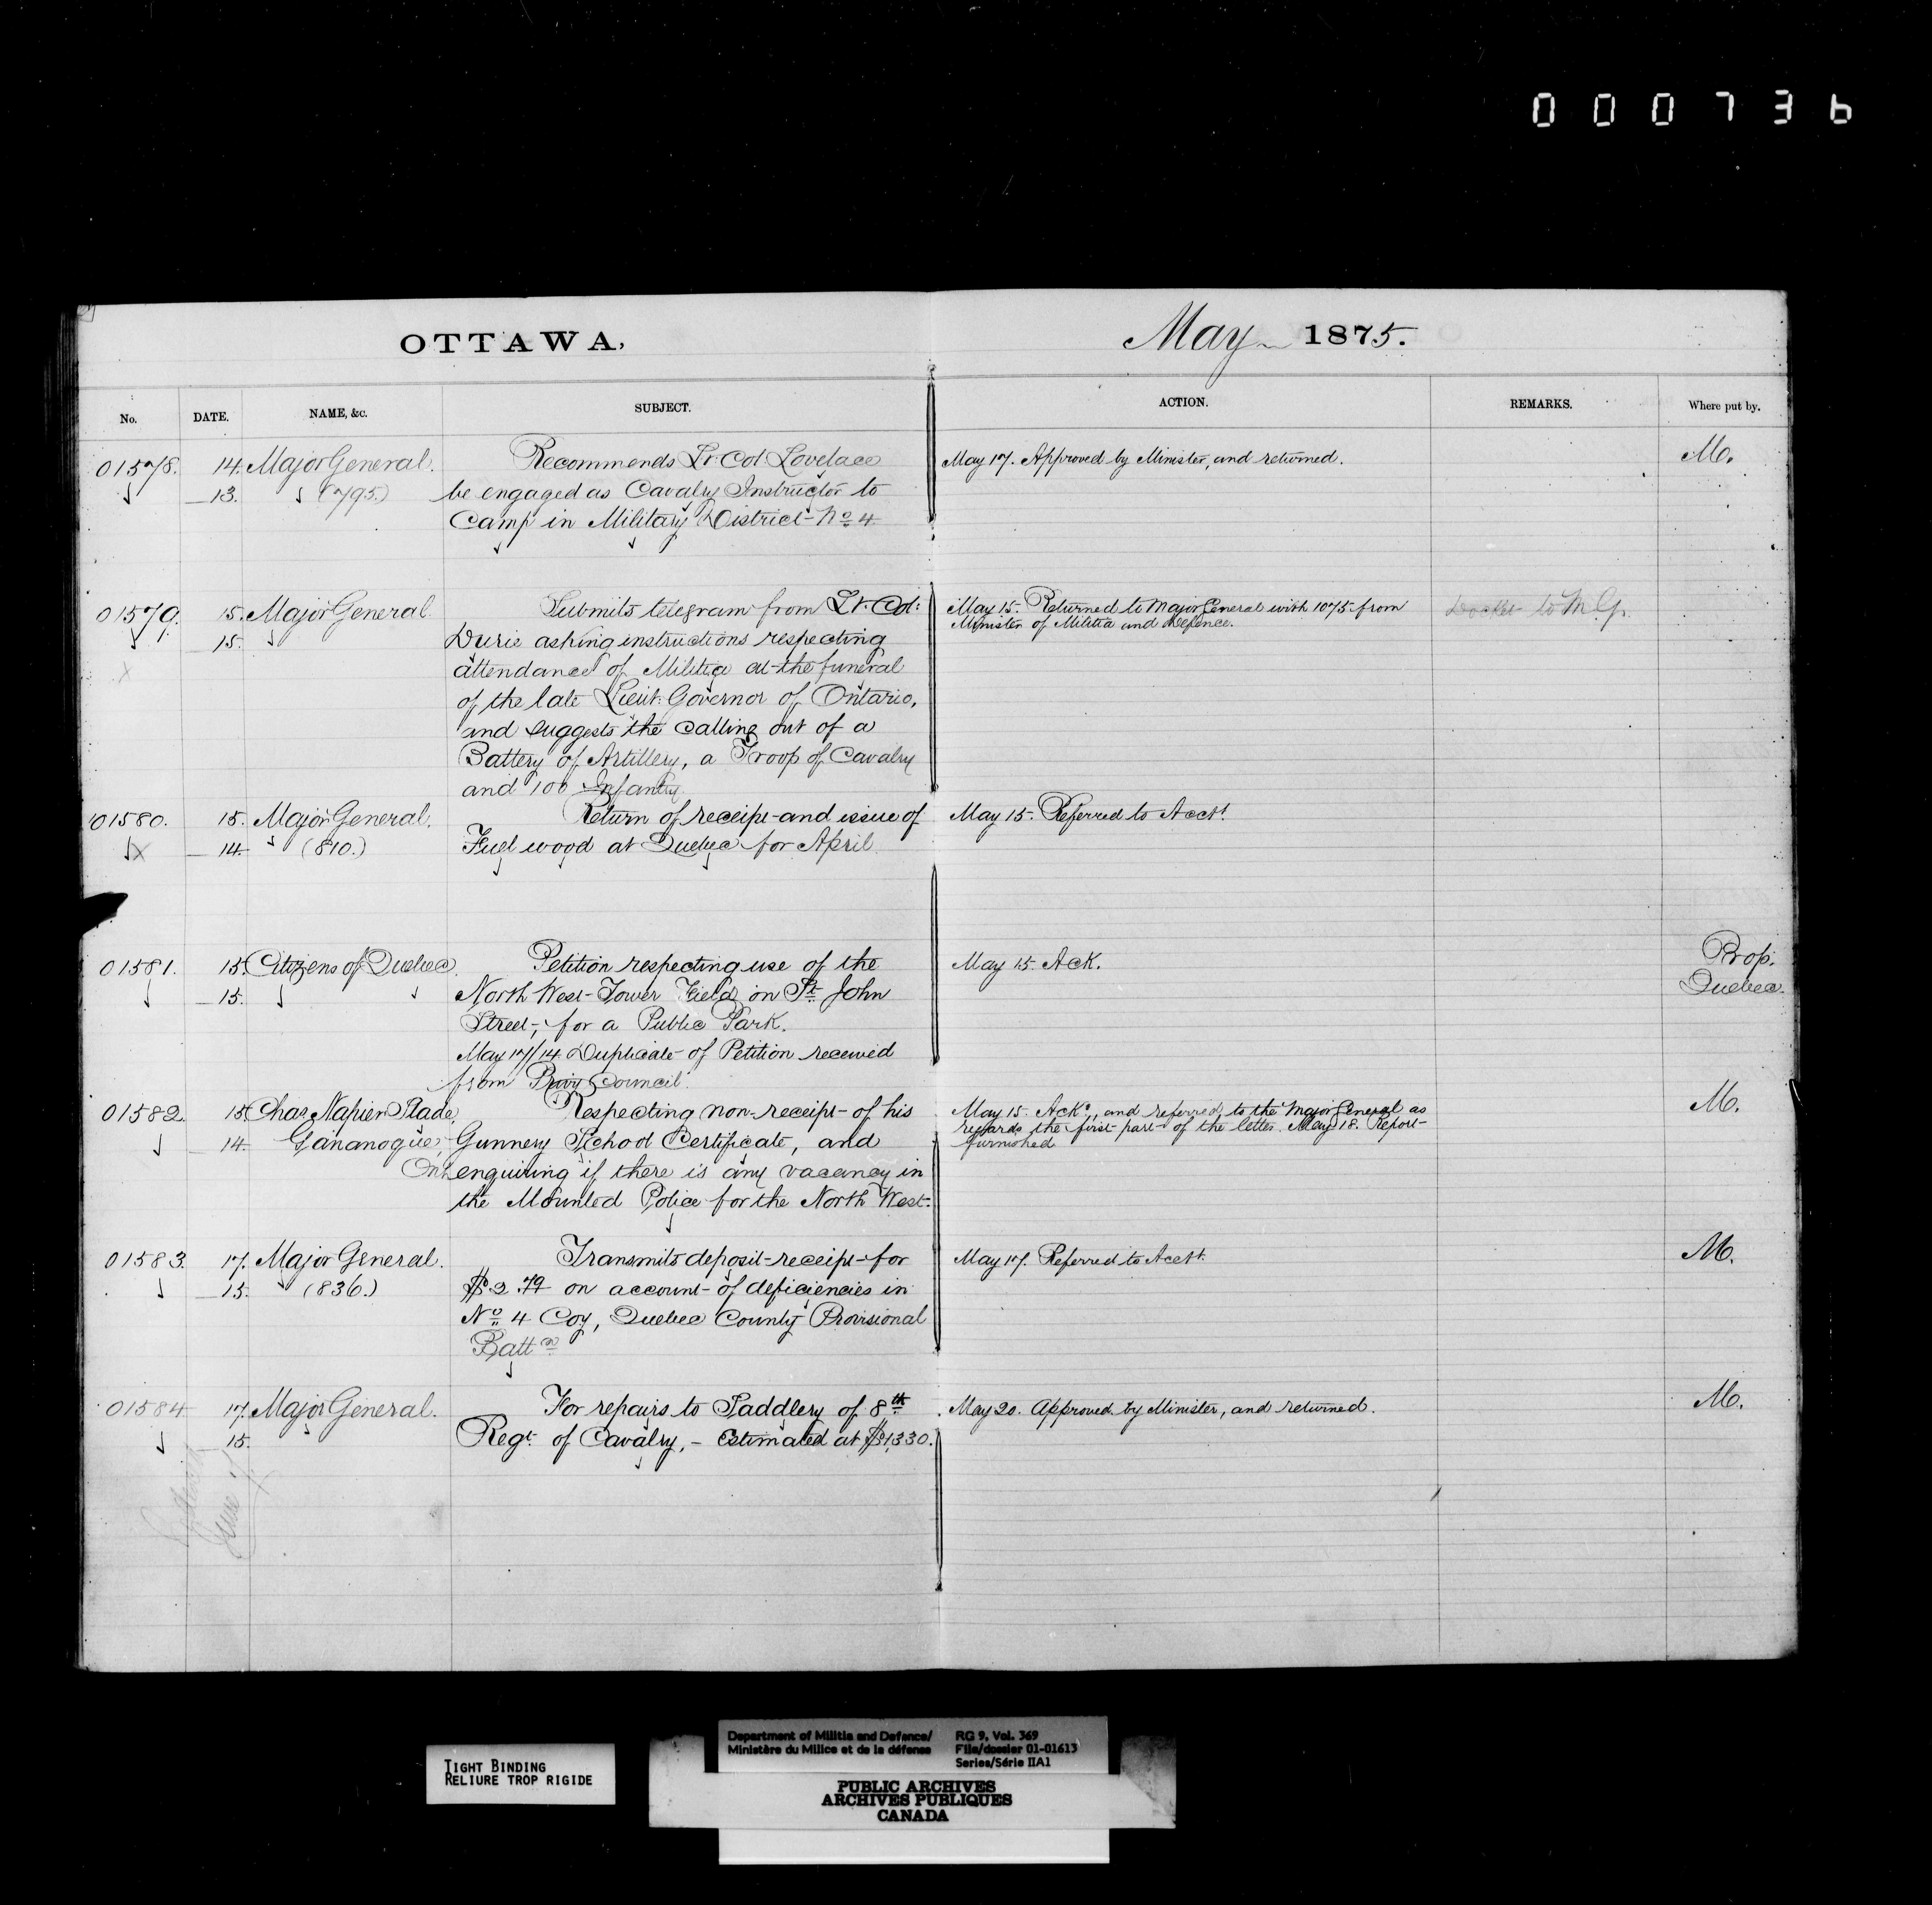 000736
OTTAWA,
May 1875.
No.
DATE.
NAME, &c.
SUBJECT.
ACTION.
REMARKS.
Where put by.
01578. 14. Major General. Recommends Lt. Col. Lovelace May 17. Approved by Minister, and returned. M.
13. (795.) be engaged as Cavalry Instructor to
Camp in Military District No 4
01579. 15. Major General Submits telegram from Lt. Col: May 15. Returned to Major General with 1075 from to M.G.
15. Durie asking instructions respecting Minister of Militia and Defence.
attendance of Militia at the funeral
of the late Lieut: Governor of Ontario,
and suggests the calling out of a
Battery of Artillery, a Troop of Cavalry
and 100 Infantry
01580. 15. Major General. Return of receipt and issue of May 15. Referred to Acct.
14. (810.) Fuel wood at Quebec for April
01581. 15. Citizens of Quebec. Petition respecting use of the May 15. Ack. Prop.
15. North West Tower Field on St John Quebec.
Street, for a Public Park.
May 17/14. Duplicate of Petition received
from Privy Council.
01582. 15. Chas. Napier Slade, Respecting non-receipt of his May 15. Ackd., and referred to the Major General as M.
14. Gananoque, Gunnery School Certificate, and regards the first part of the letter. May 18. Report
Ont. enquiring if there is any vacancy in furnished
the Mounted Police for the North West.
01583. 17. Major General. Transmits deposit receipt for May 17. Referred to Acct. M.
15. (836.) $2.79 on account of deficiencies in
No 4 Coy, Quebec County Provisional
Battn
01584 17. Major General. For repairs to Saddlery of 8th May 20. Approved by Minister, and returned. M.
15. Regt. of Cavalry, - Estimated at $1,330.
TIGHT BINDING
RELIURE TROP RIGIDE
Department of Militia and Defence/
Ministère du Milice et de la défense
RG 9, Vol. 369
File/dossier 01-01613
Series/Série IIA1
PUBLIC ARCHIVES
ARCHIVES PUBLIQUES
CANADA